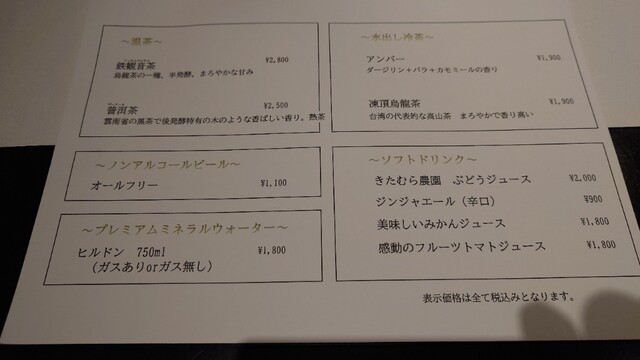 ～温茶～
鉄観音茶 ¥2,800
烏龍茶の一種、半発酵、まろやかな甘み
普洱茶 ¥2,500
雲南省の黒茶で後発酵特有の木のような香ばしい香り。熟茶
～ノンアルコールビール～
オールフリー ¥1,100
～プレミアムミネラルウォーター～
ヒルドン 750ml ¥1,800
(ガスありorガス無し)
～水出し冷茶～
アンバー ¥1,900
ダージリン＋バラ＋カモミールの香り
凍頂烏龍茶 ¥1,900
台湾の代表的な高山茶 まろやかで香り高い
～ソフトドリンク～
きたむら農園 ぶどうジュース ¥2,000
ジンジャエール（辛口） ¥900
美味しいみかんジュース ¥1,800
感動のフルーツトマトジュース ¥1,800
表示価格は全て税込みとなります。